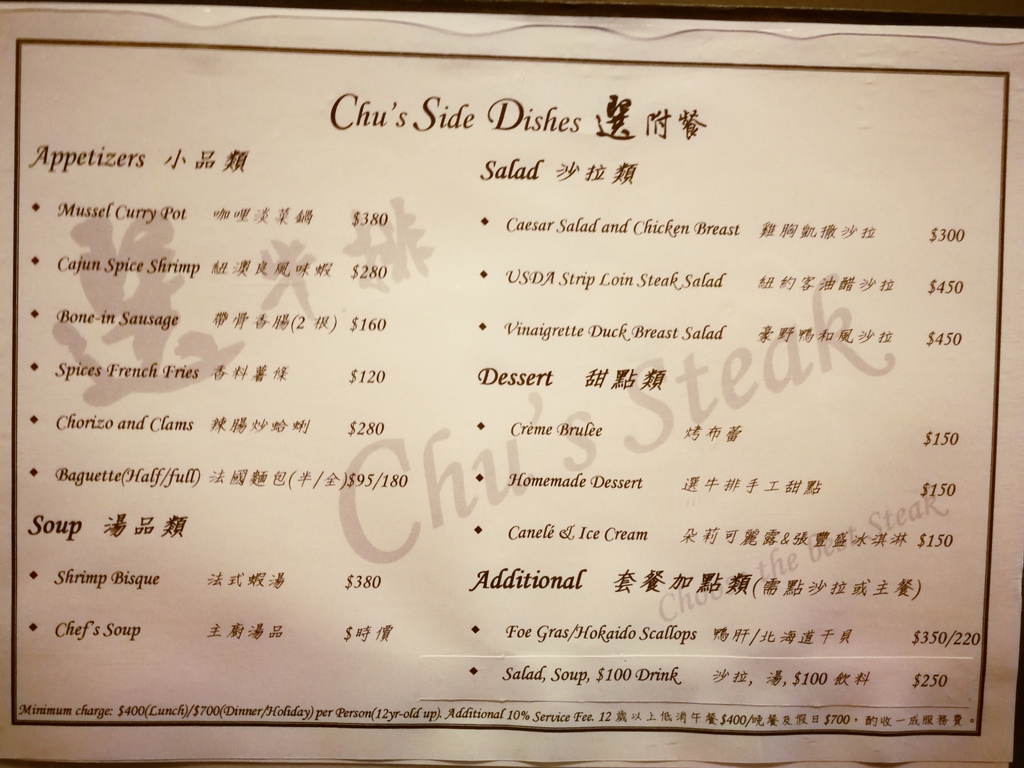 Chu's Side Dishes 選 附餐
Appetizers 小品類
Mussel Curry Pot 咖哩淡菜鍋 $380
Cajun Spice Shrimp 紐澳良風味蝦 $280
Bone-in Sausage 帶骨香腸(2 根) $160
Spices French Fries 香料薯條 $120
Chorizo and Clams 辣腸炒蛤蜊 $280
Baguette(Half/full) 法國麵包(半/全)$95/180
Soup 湯品類
Shrimp Bisque 法式蝦湯 $380
Chef's Soup 主廚湯品 $時價
Salad 沙拉類
Caesar Salad and Chicken Breast 雞胸凱撒沙拉 $300
USDA Strip Loin Steak Salad 紐約客油醋沙拉 $450
Vinaigrette Duck Breast Salad 豪野鴨和風沙拉 $450
Dessert 甜點類
Crème Brulèe 烤布蕾 $150
Homemade Dessert 選牛排手工甜點 $150
Canelé & Ice Cream 朵莉可麗露&張豐盛冰淇淋 $150
Additional 套餐加點類(需點沙拉或主餐)
Foe Gras/Hokaido Scallops 鴨肝/北海道干貝 $350/220
Salad, Soup, $100 Drink 沙拉, 湯, $100 飲料 $250
Minimum charge: $400(Lunch)/$700(Dinner/Holiday) per Person(12yr-old up). Additional 10% Service Fee. 12 歲以上低消午餐$400/晚餐及假日$700，酌收一成服務費。
選 牛 排
Chu's Steak
Choose the best Steak